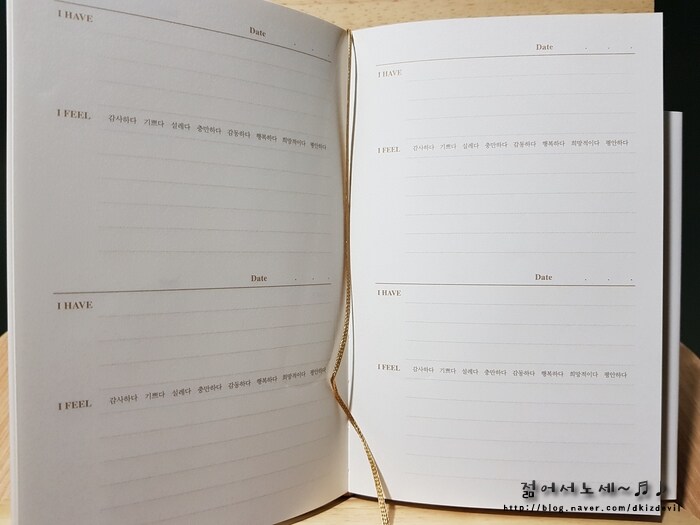 I HAVE
Date . . .
I FEEL 감사하다 기쁘다 설레다 충만하다 감동하다 행복하다 희망적이다 평안하다
Date . . .
I HAVE
I FEEL 감사하다 기쁘다 설레다 충만하다 감동하다 행복하다 희망적이다 평안하다
Date . . .
I HAVE
I FEEL 감사하다 기쁘다 설레다 충만하다 감동하다 행복하다 희망적이다 평안하다
Date . . .
I HAVE
I FEEL 감사하다 기쁘다 설레다 충만하다 감동하다 행복하다 희망적이다 평안하다
젊어서노세~♬♪
http://blog.naver.com/dkizdevil